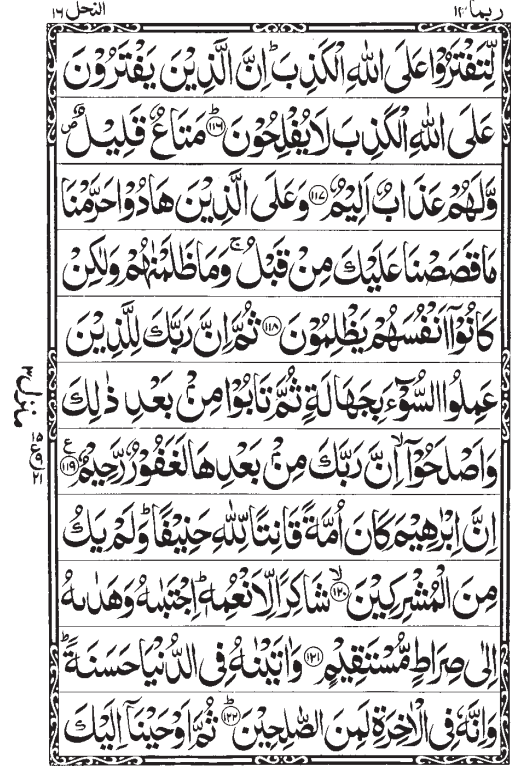 ربما ١٤
النحل ١٦
لِّتَفْتَرُوْا عَلَى اللّٰهِ الْكَذِبَ ؕ اِنَّ الَّذِيْنَ يَفْتَرُوْنَ
عَلَى اللّٰهِ الْكَذِبَ لَا يُفْلِحُوْنَ ؕ﴿۱۱۶﴾ مَتَاعٌ قَلِيْلٌ ۪
وَّلَهُمْ عَذَابٌ اَلِيْمٌ ﴿۱۱۷﴾ وَعَلَى الَّذِيْنَ هَادُوْا حَرَّمْنَا
مَا قَصَصْنَا عَلَيْكَ مِنْ قَبْلُ ۚ وَمَا ظَلَمْنٰهُمْ وَلٰكِنْ
كَانُوْۤا اَنْفُسَهُمْ يَظْلِمُوْنَ ﴿۱۱۸﴾ ثُمَّ اِنَّ رَبَّكَ لِلَّذِيْنَ
عَمِلُوا السُّوْٓءَ بِجَهَالَةٍ ثُمَّ تَابُوْا مِنْۢ بَعْدِ ذٰلِكَ
وَاَصْلَحُوْۤا ۙ اِنَّ رَبَّكَ مِنْۢ بَعْدِهَا لَغَفُوْرٌ رَّحِيْمٌ ﴿۱۱۹﴾ ع
اِنَّ اِبْرٰهِيْمَ كَانَ اُمَّةً قَانِتًا لِّلّٰهِ حَنِيْفًا ؕ وَلَمْ يَكُ
مِنَ الْمُشْرِكِيْنَ ۙ﴿۱۲۰﴾ شَاكِرًا لِّاَنْعُمِهٖ ؕ اِجْتَبٰىهُ وَهَدٰىهُ
اِلٰى صِرَاطٍ مُّسْتَقِيْمٍ ﴿۱۲۱﴾ وَاٰتَيْنٰهُ فِى الدُّنْيَا حَسَنَةً ؕ
وَاِنَّهٗ فِى الْاٰخِرَةِ لَمِنَ الصّٰلِحِيْنَ ؕ﴿۱۲۲﴾ ثُمَّ اَوْحَيْنَاۤ اِلَيْكَ
منزل ٣
ع
٢١